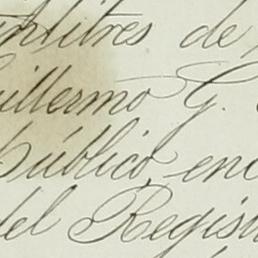 intitres de
uillermo G.
público, enc
del Regist